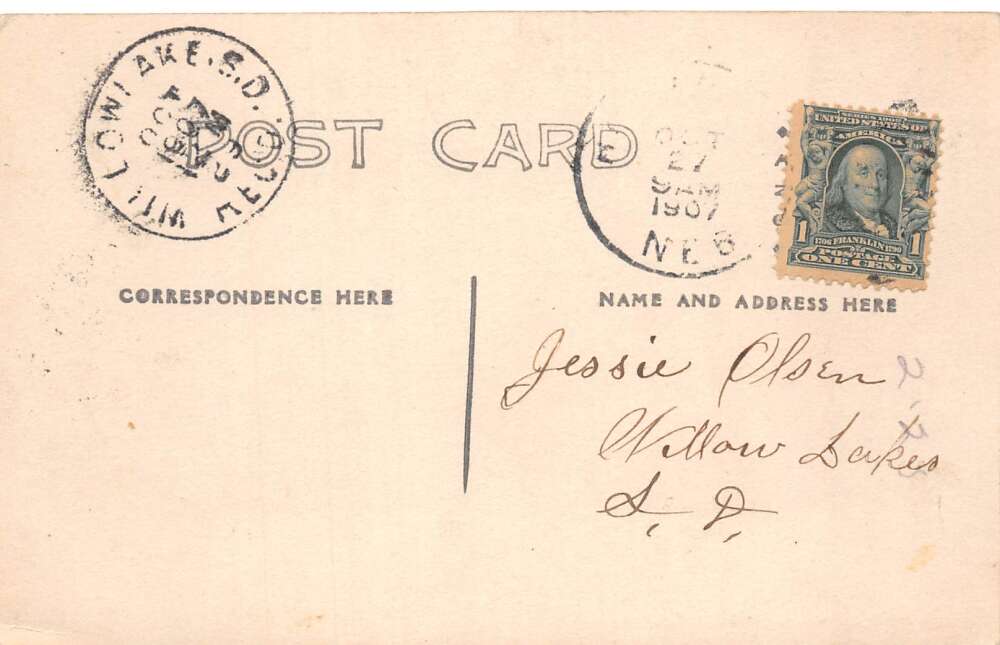 WILLOWLAKE, S.D. REC'D.
POST CARD
OCT
27
9 AM
1907
NEB
SERIES 1902
UNITED STATES OF
AMERICA
1 1706 FRANKLIN 1790 1
POSTAGE
ONE CENT
CORRESPONDENCE HERE
NAME AND ADDRESS HERE
Jessie Olsen
Willow Lakes
S. D.